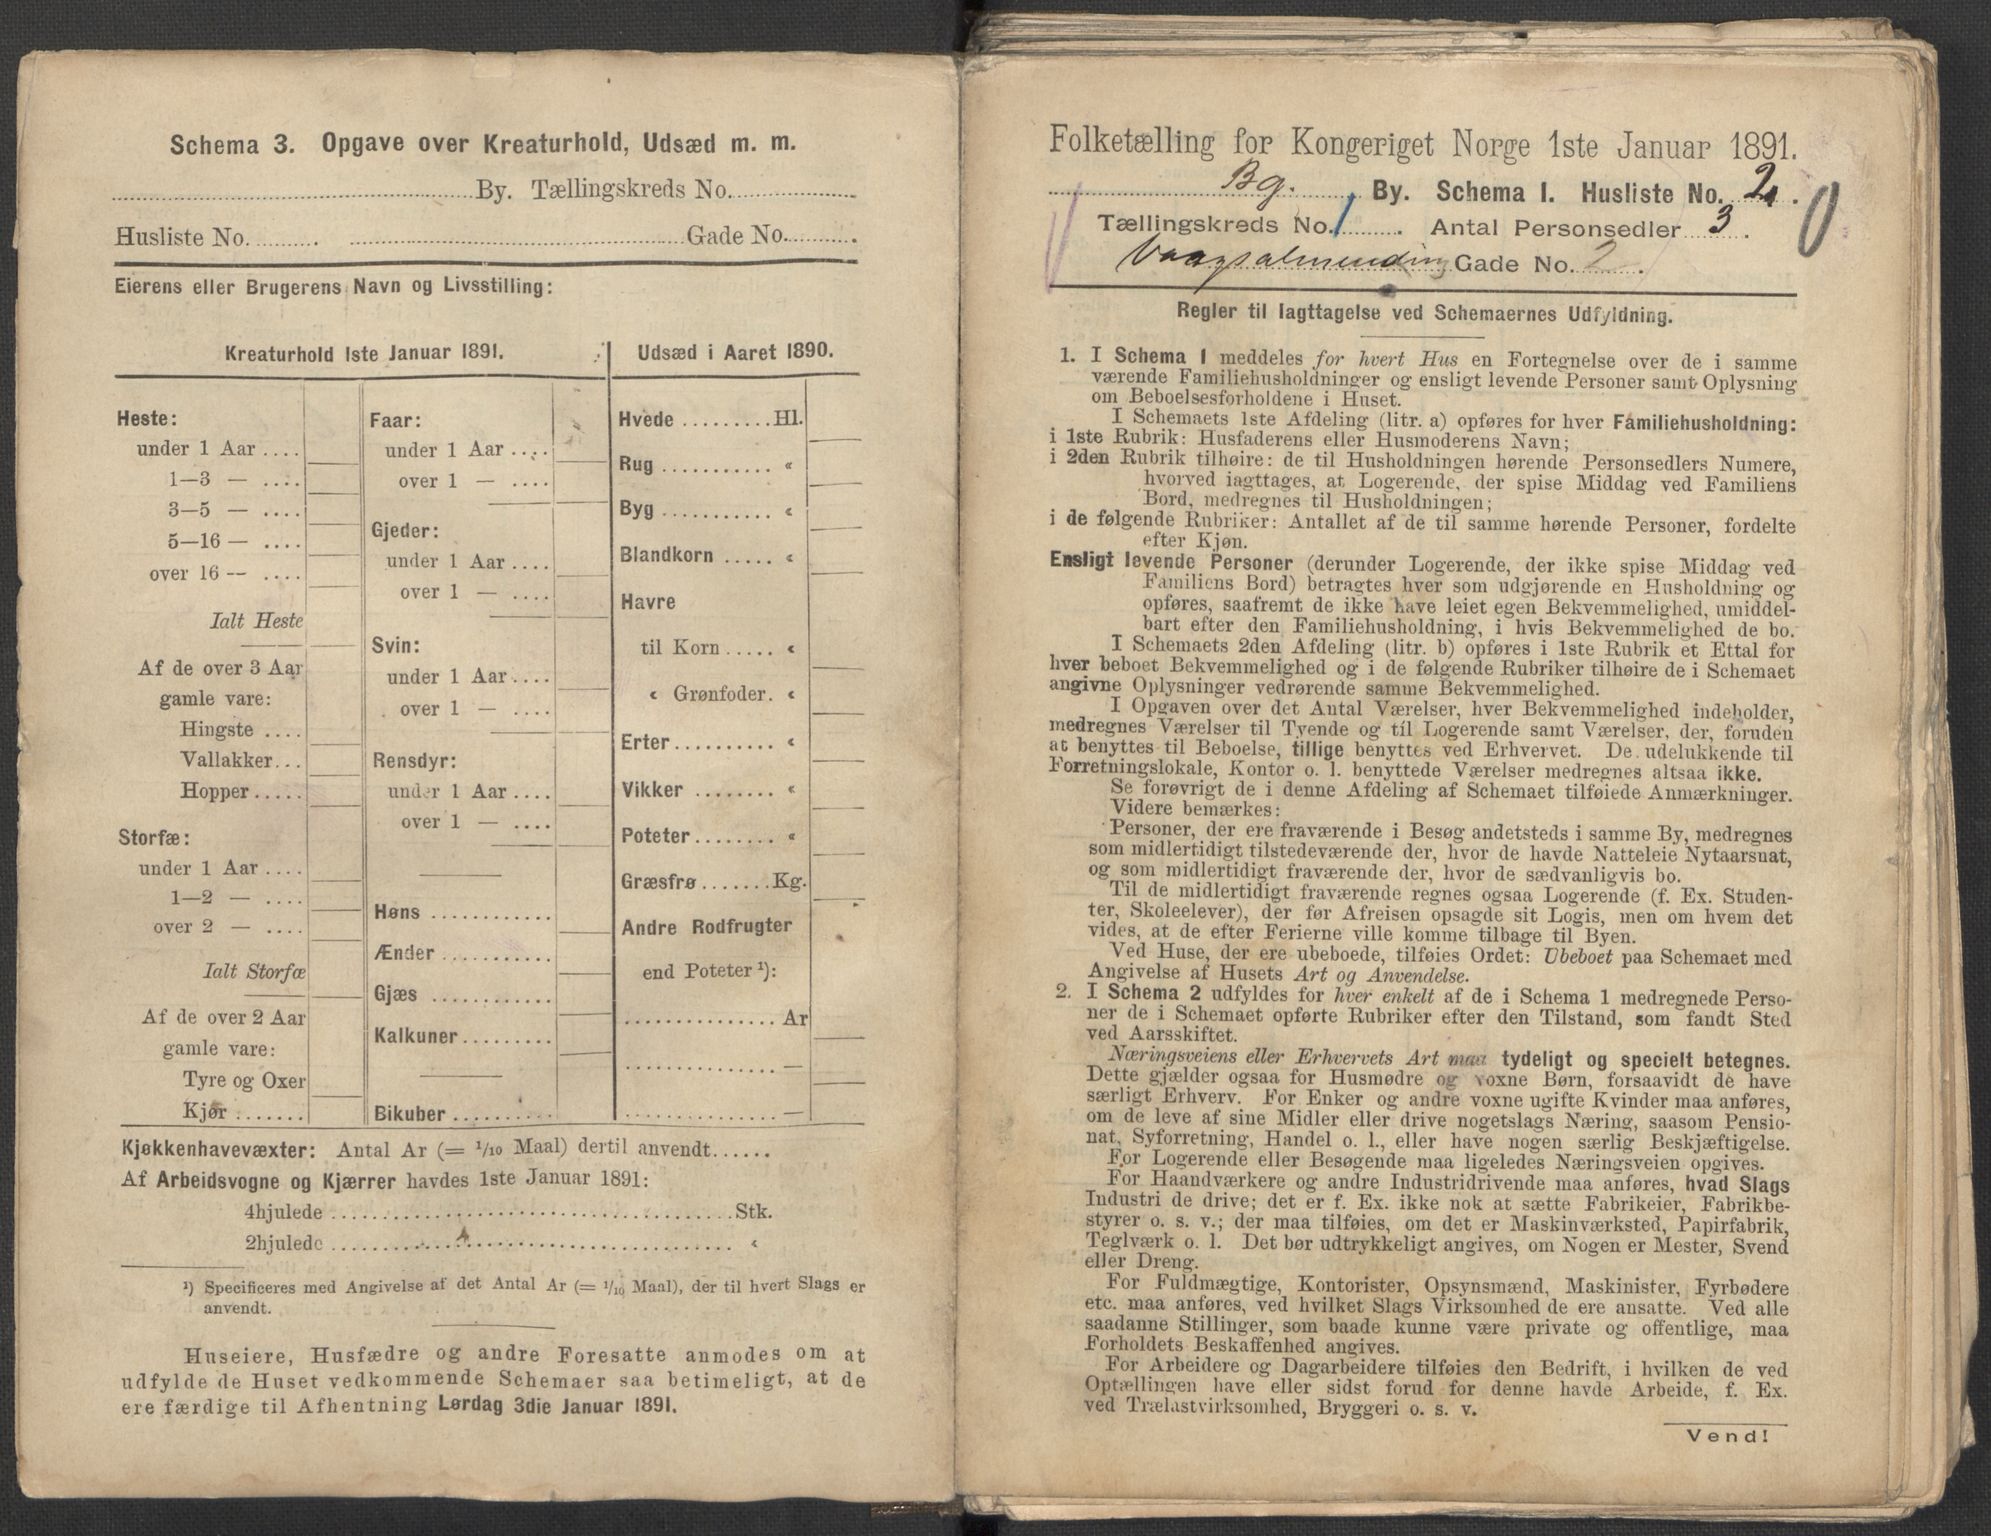 Schema 3. Opgave over Kreaturhold, Udsæd m. m.
By. Tællingskreds No.
Husliste No. Gade No.
Eierens eller Brugerens Navn og Livsstilling:
Kreaturhold 1ste Januar 1891.
Heste:
under 1 Aar
1—3 —
3—5 —
5—16 —
over 16 —
Ialt Heste
Af de over 3 Aar
gamle vare:
Hingste
Vallakker
Hopper
Storfæ:
under 1 Aar
1—2 —
over 2 —
Ialt Storfæ
Af de over 2 Aar
gamle vare:
Tyre og Oxer
Kjør
Faar:
under 1 Aar
over 1 —
Gjeder:
under 1 Aar
over 1 —
Svin:
under 1 Aar
over 1 —
Rensdyr:
under 1 Aar
over 1 —
Høns
Ænder
Gjæs
Kalkuner
Bikuber
Udsæd i Aaret 1890.
Hvede Hl.
Rug «
Byg «
Blandkorn «
Havre
til Korn «
« Grønfoder «
Erter «
Vikker «
Poteter «
Græsfrø Kg.
Andre Rodfrugter
end Poteter ¹):
Ar
—
—
Kjøkkenhavevæxter: Antal Ar (= 1/10 Maal) dertil anvendt
Af Arbeidsvogne og Kjærrer havdes 1ste Januar 1891:
4hjulede Stk.
2hjulede «
¹) Specificeres med Angivelse af det Antal Ar (= 1/10 Maal), der til hvert Slags er
anvendt.
Huseiere, Husfædre og andre Foresatte anmodes om at
udfylde de Huset vedkommende Schemaer saa betimeligt, at de
ere færdige til Afhentning Lørdag 3die Januar 1891.
Folketælling for Kongeriget Norge 1ste Januar 1891.
Bg. By. Schema I. Husliste No. 2.
Tællingskreds No. 1. Antal Personsedler 3.
Vaagsalmending Gade No. 2.
Regler til Iagttagelse ved Schemaernes Udfyldning.
1. I Schema 1 meddeles for hvert Hus en Fortegnelse over de i samme
værende Familiehusholdninger og ensligt levende Personer samt Oplysning
om Beboelsesforholdene i Huset.
I Schemaets 1ste Afdeling (litr. a) opføres for hver Familiehusholdning:
i 1ste Rubrik: Husfaderens eller Husmoderens Navn;
i 2den Rubrik tilhøire: de til Husholdningen hørende Personsedlers Numere,
hvorved iagttages, at Logerende, der spise Middag ved Familiens
Bord, medregnes til Husholdningen;
i de følgende Rubriker: Antallet af de til samme hørende Personer, fordelte
efter Kjøn.
Ensligt levende Personer (derunder Logerende, der ikke spise Middag ved
Familiens Bord) betragtes hver som udgjørende en Husholdning og
opføres, saafremt de ikke have leiet egen Bekvemmelighed, umiddel-
bart efter den Familiehusholdning, i hvis Bekvemmelighed de bo.
I Schemaets 2den Afdeling (litr. b) opføres i 1ste Rubrik et Ettal for
hver beboet Bekvemmelighed og i de følgende Rubriker tilhøire de i Schemaet
angivne Oplysninger vedrørende samme Bekvemmelighed.
I Opgaven over det Antal Værelser, hver Bekvemmelighed indeholder,
medregnes Værelser til Tyende og til Logerende samt Værelser, der, foruden
at benyttes til Beboelse, tillige benyttes ved Erhvervet. De udelukkende til
Forretningslokale, Kontor o. l. benyttede Værelser medregnes altsaa ikke.
Se forøvrigt de i denne Afdeling af Schemaet tilføiede Anmærkninger.
Videre bemærkes:
Personer, der ere fraværende i Besøg andetsteds i samme By, medregnes
som midlertidigt tilstedeværende der, hvor de havde Natteleie Nytaarsnat,
og som midlertidigt fraværende der, hvor de sædvanligvis bo.
Til de midlertidigt fraværende regnes ogsaa Logerende (f. Ex. Studen-
ter, Skoleelever), der før Afreisen opsagde sit Logis, men om hvem det
vides, at de efter Ferierne ville komme tilbage til Byen.
Ved Huse, der ere ubeboede, tilføies Ordet: Ubeboet paa Schemaet med
Angivelse af Husets Art og Anvendelse.
2. I Schema 2 udfyldes for hver enkelt af de i Schema 1 medregnede Perso-
ner de i Schemaet opførte Rubriker efter den Tilstand, som fandt Sted
ved Aarsskiftet.
Næringsveiens eller Erhvervets Art maa tydeligt og specielt betegnes.
Dette gjælder ogsaa for Husmødre og voxne Børn, forsaavidt de have
særligt Erhverv. For Enker og andre voxne ugifte Kvinder maa anføres,
om de leve af sine Midler eller drive nogetslags Næring, saasom Pensio-
nat, Syforretning, Handel o. l., eller have nogen særlig Beskjæftigelse.
For Logerende eller Besøgende maa ligeledes Næringsveien opgives.
For Haandværkere og andre Industridrivende maa anføres, hvad Slags
Industri de drive; det er f. Ex. ikke nok at sætte Fabrikeier, Fabrikbe-
styrer o. s. v.; der maa tilføies, om det er Maskinværksted, Papirfabrik,
Teglværk o. l. Det bør udtrykkeligt angives, om Nogen er Mester, Svend
eller Dreng.
For Fuldmægtige, Kontorister, Opsynsmænd, Maskinister, Fyrbødere
etc. maa anføres, ved hvilket Slags Virksomhed de ere ansatte. Ved alle
saadanne Stillinger, som baade kunne være private og offentlige, maa
Forholdets Beskaffenhed angives.
For Arbeidere og Dagarbeidere tilføies den Bedrift, i hvilken de ved
Optællingen have eller sidst forud for denne havde Arbeide, f. Ex.
ved Trælastvirksomhed, Bryggeri o. s. v.
Vend!